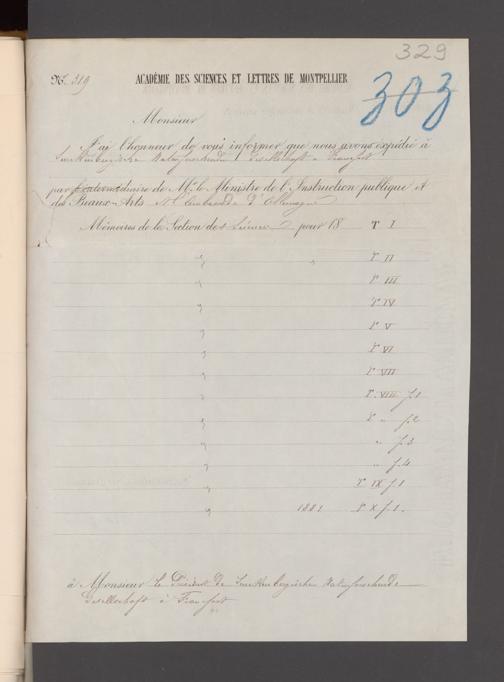 329
303
No. 319
ACADÉMIE DES SCIENCES ET LETTRES DE MONTPELLIER
Monsieur
J'ai l'honneur de vous informer que nous avons expédié à
Senckenbergische Naturforschende Gesellschaft à Francfort
par l'intermédiaire de Mr. le Ministre de l'Instruction publique et
des Beaux-Arts et l'ambassade d'Allemagne
Mémoires de la Section des Sciences pour 18 T I
" " T II
T III
" T IV
" T V
" T VI
" T VII
" T VIII f. 1
" T " f. 2
" " f. 3
" " f. 4
" T IX f. 1
" 1881 T X f. 1.
à Monsieur le Président de Senckenbergische Naturforschende
Gesellschaft à Francfort